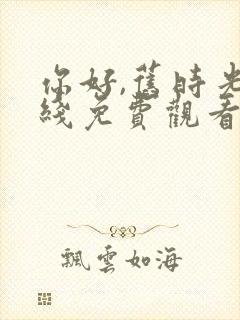 你好,舊時光
綫免費觀看
飄雲如海